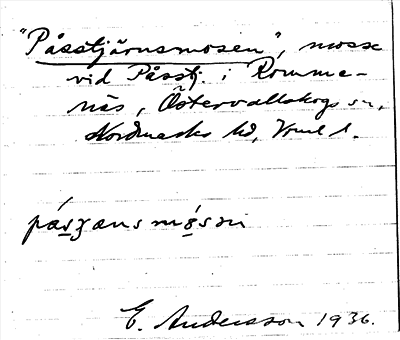 "Påsstjärnsmosen", mosse
vid Påsstj. i Romme-
näs, Östervallskogs sn,
Nordmarks hd, Vrml l.
påsʒans mosɷn
E. Andersson 1936.